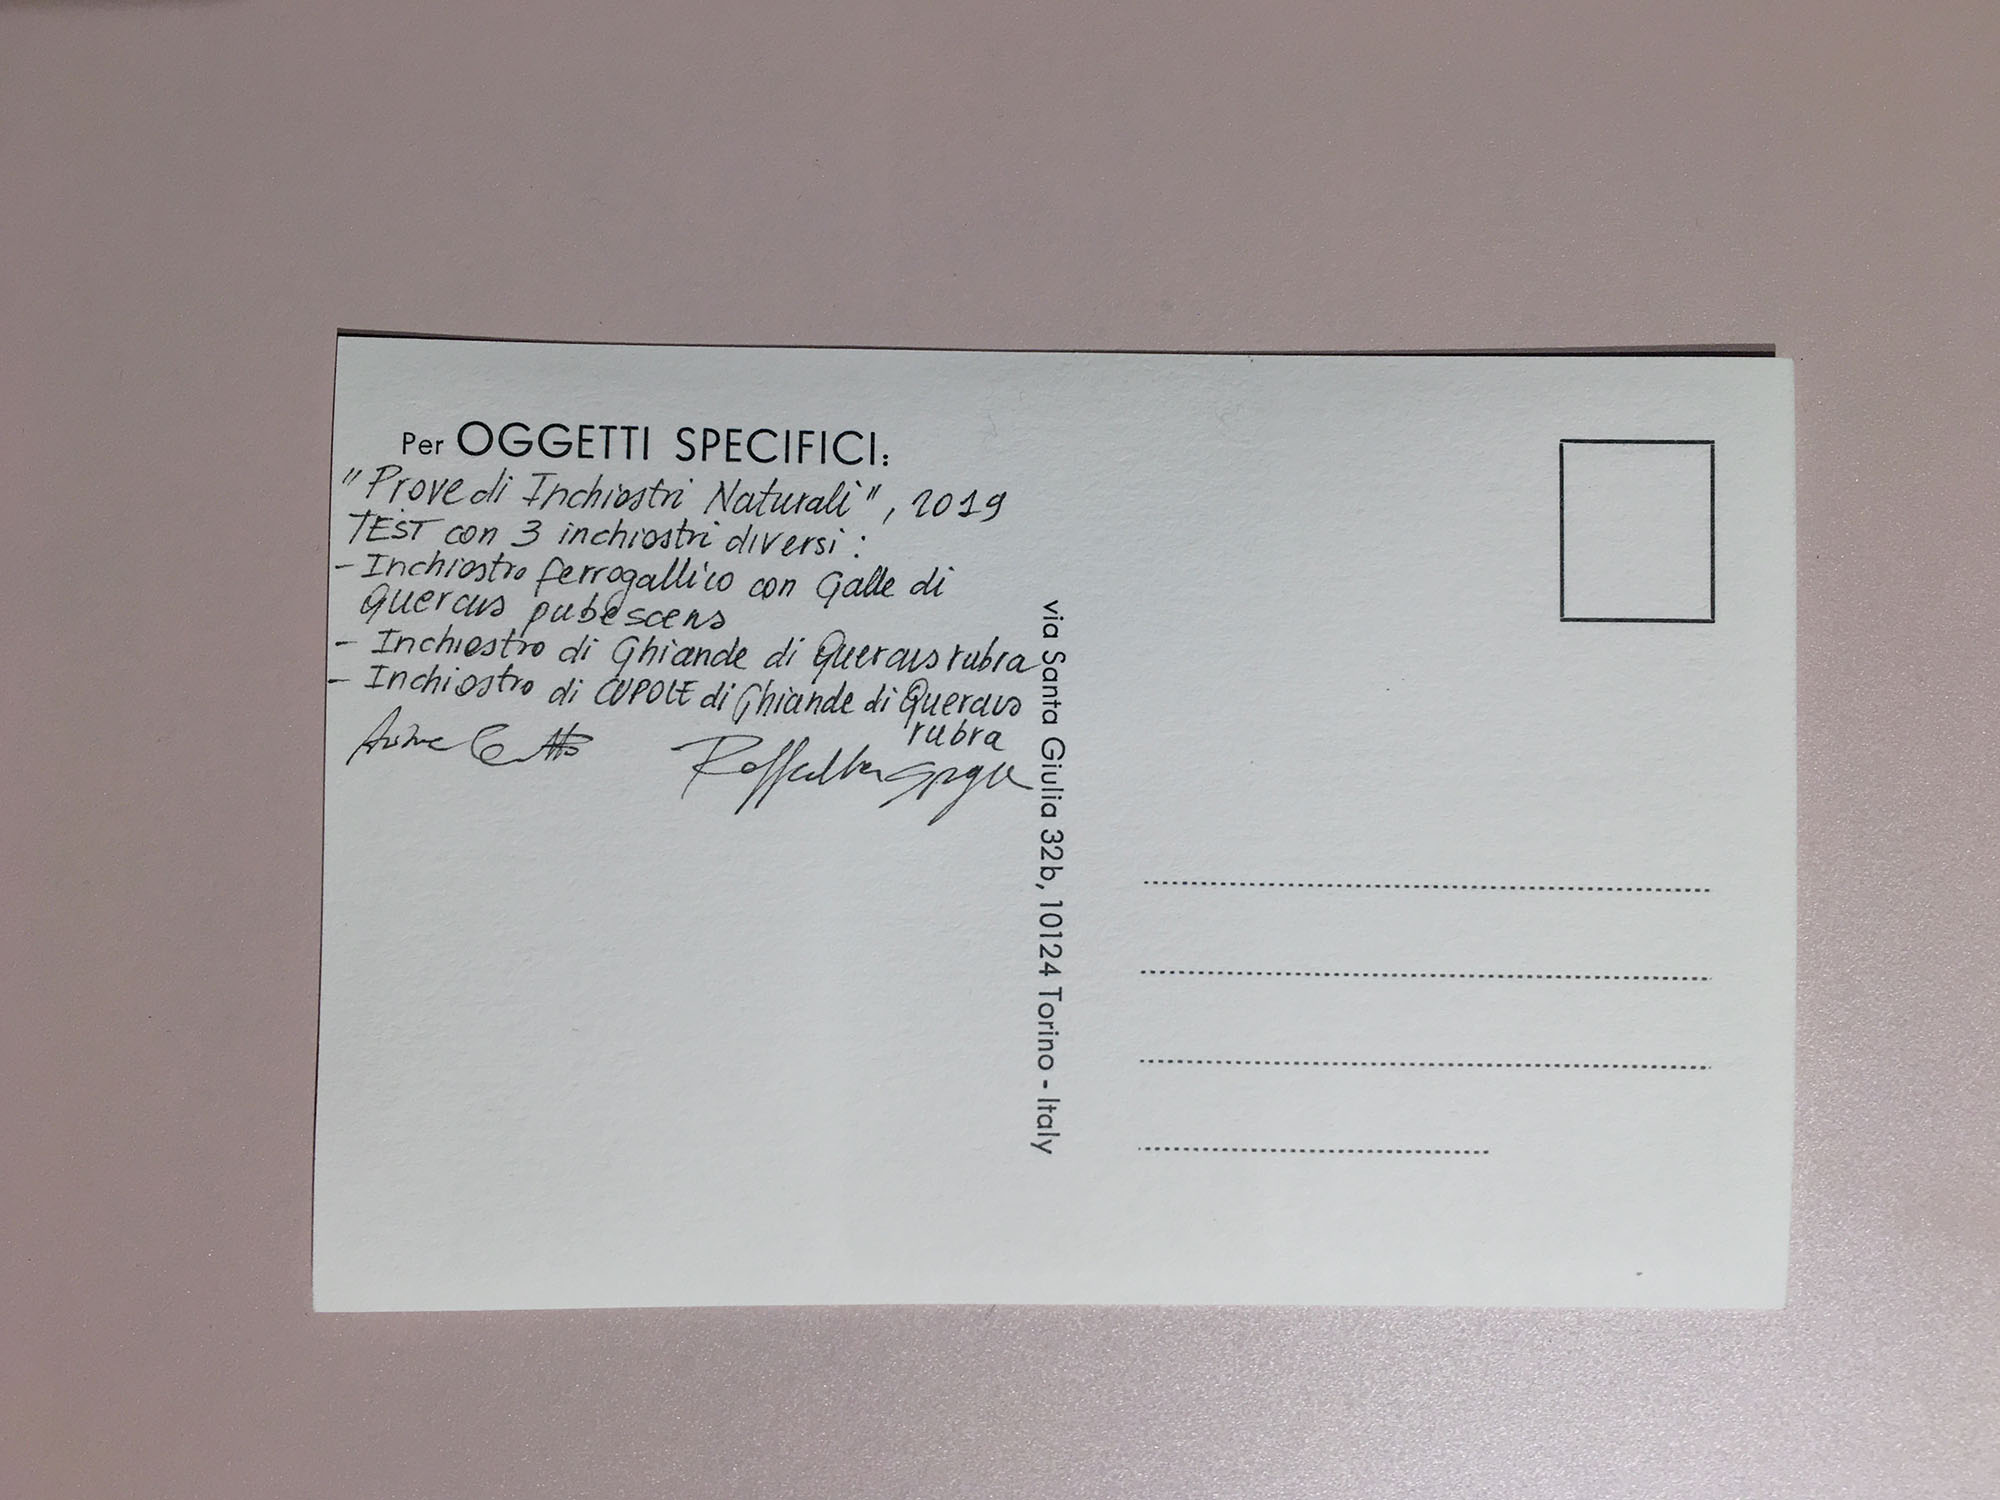 Per OGGETTI SPECIFICI:
"Prove di Inchiostri Naturali", 2019
TEST con 3 inchiostri diversi:
- Inchiostro ferrogallico con Galle di
Quercus pubescens
- Inchiostro di Ghiande di Quercus rubra
- Inchiostro di CUPOLE di Ghiande di Quercus
rubra
via Santa Giulia 32b, 10124 Torino - Italy